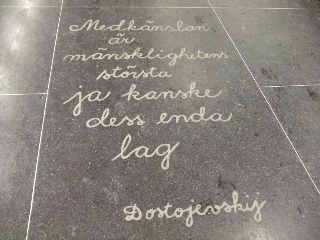 Medkänslan
är
mänsklighetens
största
ja kanske
dess enda
lag
Dostojevskij